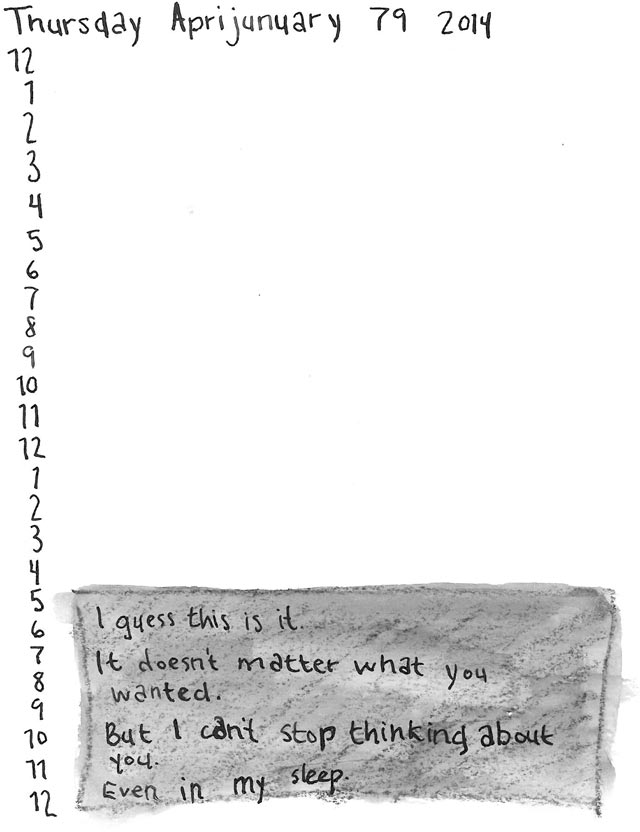 Thursday Aprijunuary 79 2014
12
1
2
3
4
5
6
7
8
9
10
11
12
1
2
3
4
5
6
7
8
9
10
11
12
I guess this is it.
It doesn't matter what you
wanted.
But I can't stop thinking about
you.
Even in my sleep.